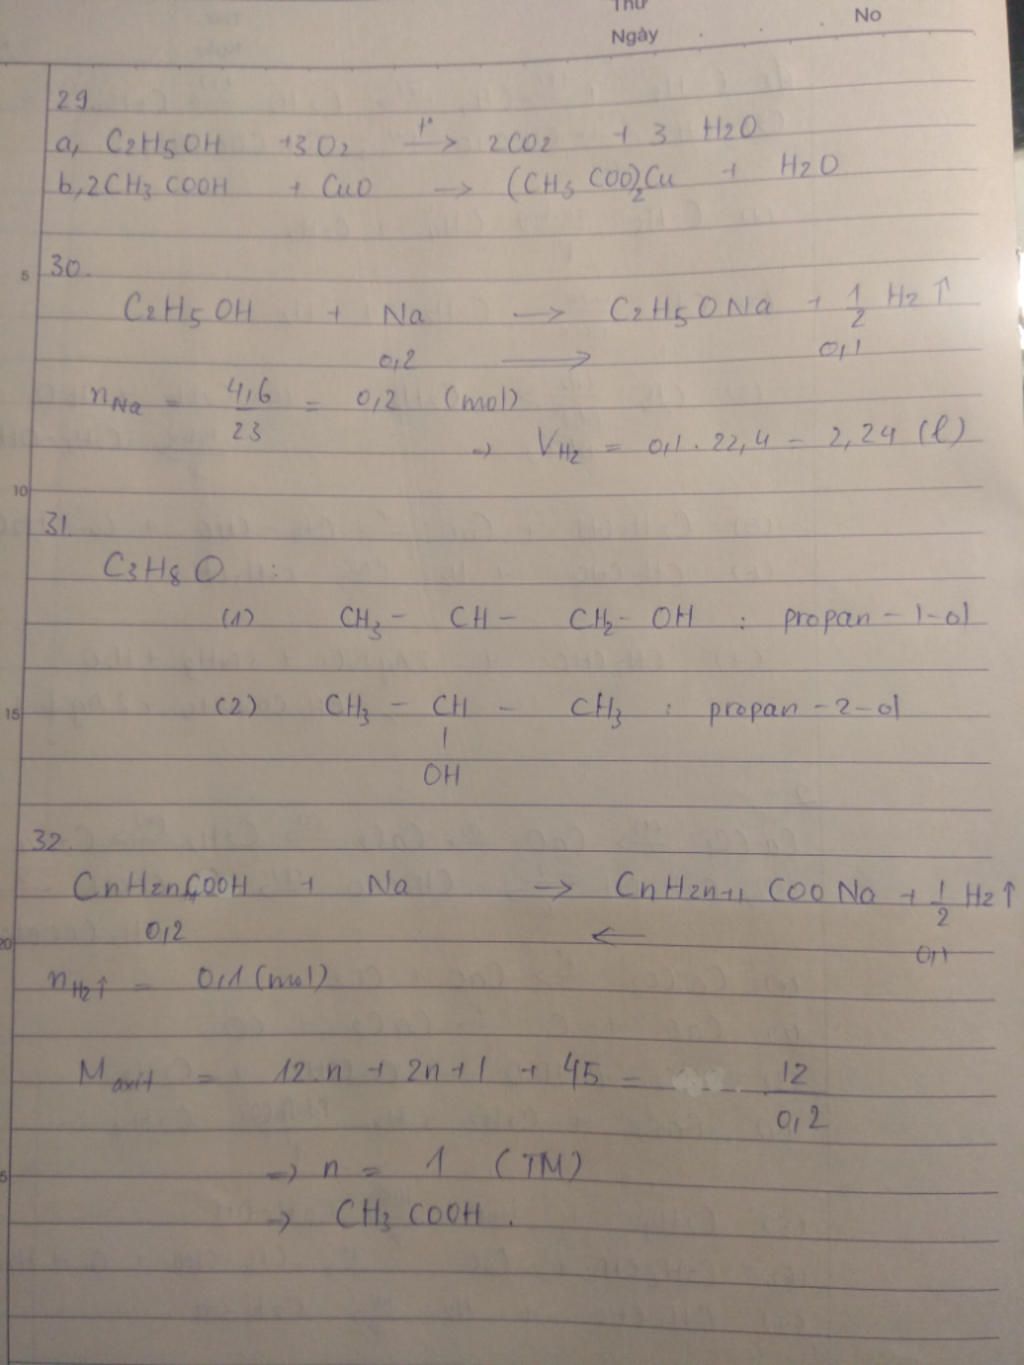 Thứ
Ngày
No
29
a, C2H5OH +3O2 →(t°) 2CO2 + 3 H2O
b, 2CH3COOH + CuO → (CH3COO)2Cu + H2O
5
30.
C2H5OH + Na → C2H5ONa + 1/2 H2↑
0,2 → 0,1
nNa = 4,6/23 = 0,2 (mol)
→ VH2 = 0,1.22,4 = 2,24 (l)
10
31.
C3H8O :
(1) CH3 - CH - CH2 - OH : propan-1-ol
15
(2) CH3 - CH - CH3 : propan-2-ol
|
OH
32.
CnH2n+1COOH + Na → CnH2n+1 COONa + 1/2 H2↑
20
0,2 ← 0,1
nH2↑ = 0,1 (mol)
Maxit = 12.n + 2n+1 + 45 = 12/0,2
→ n = 1 (TM)
→ CH3COOH.